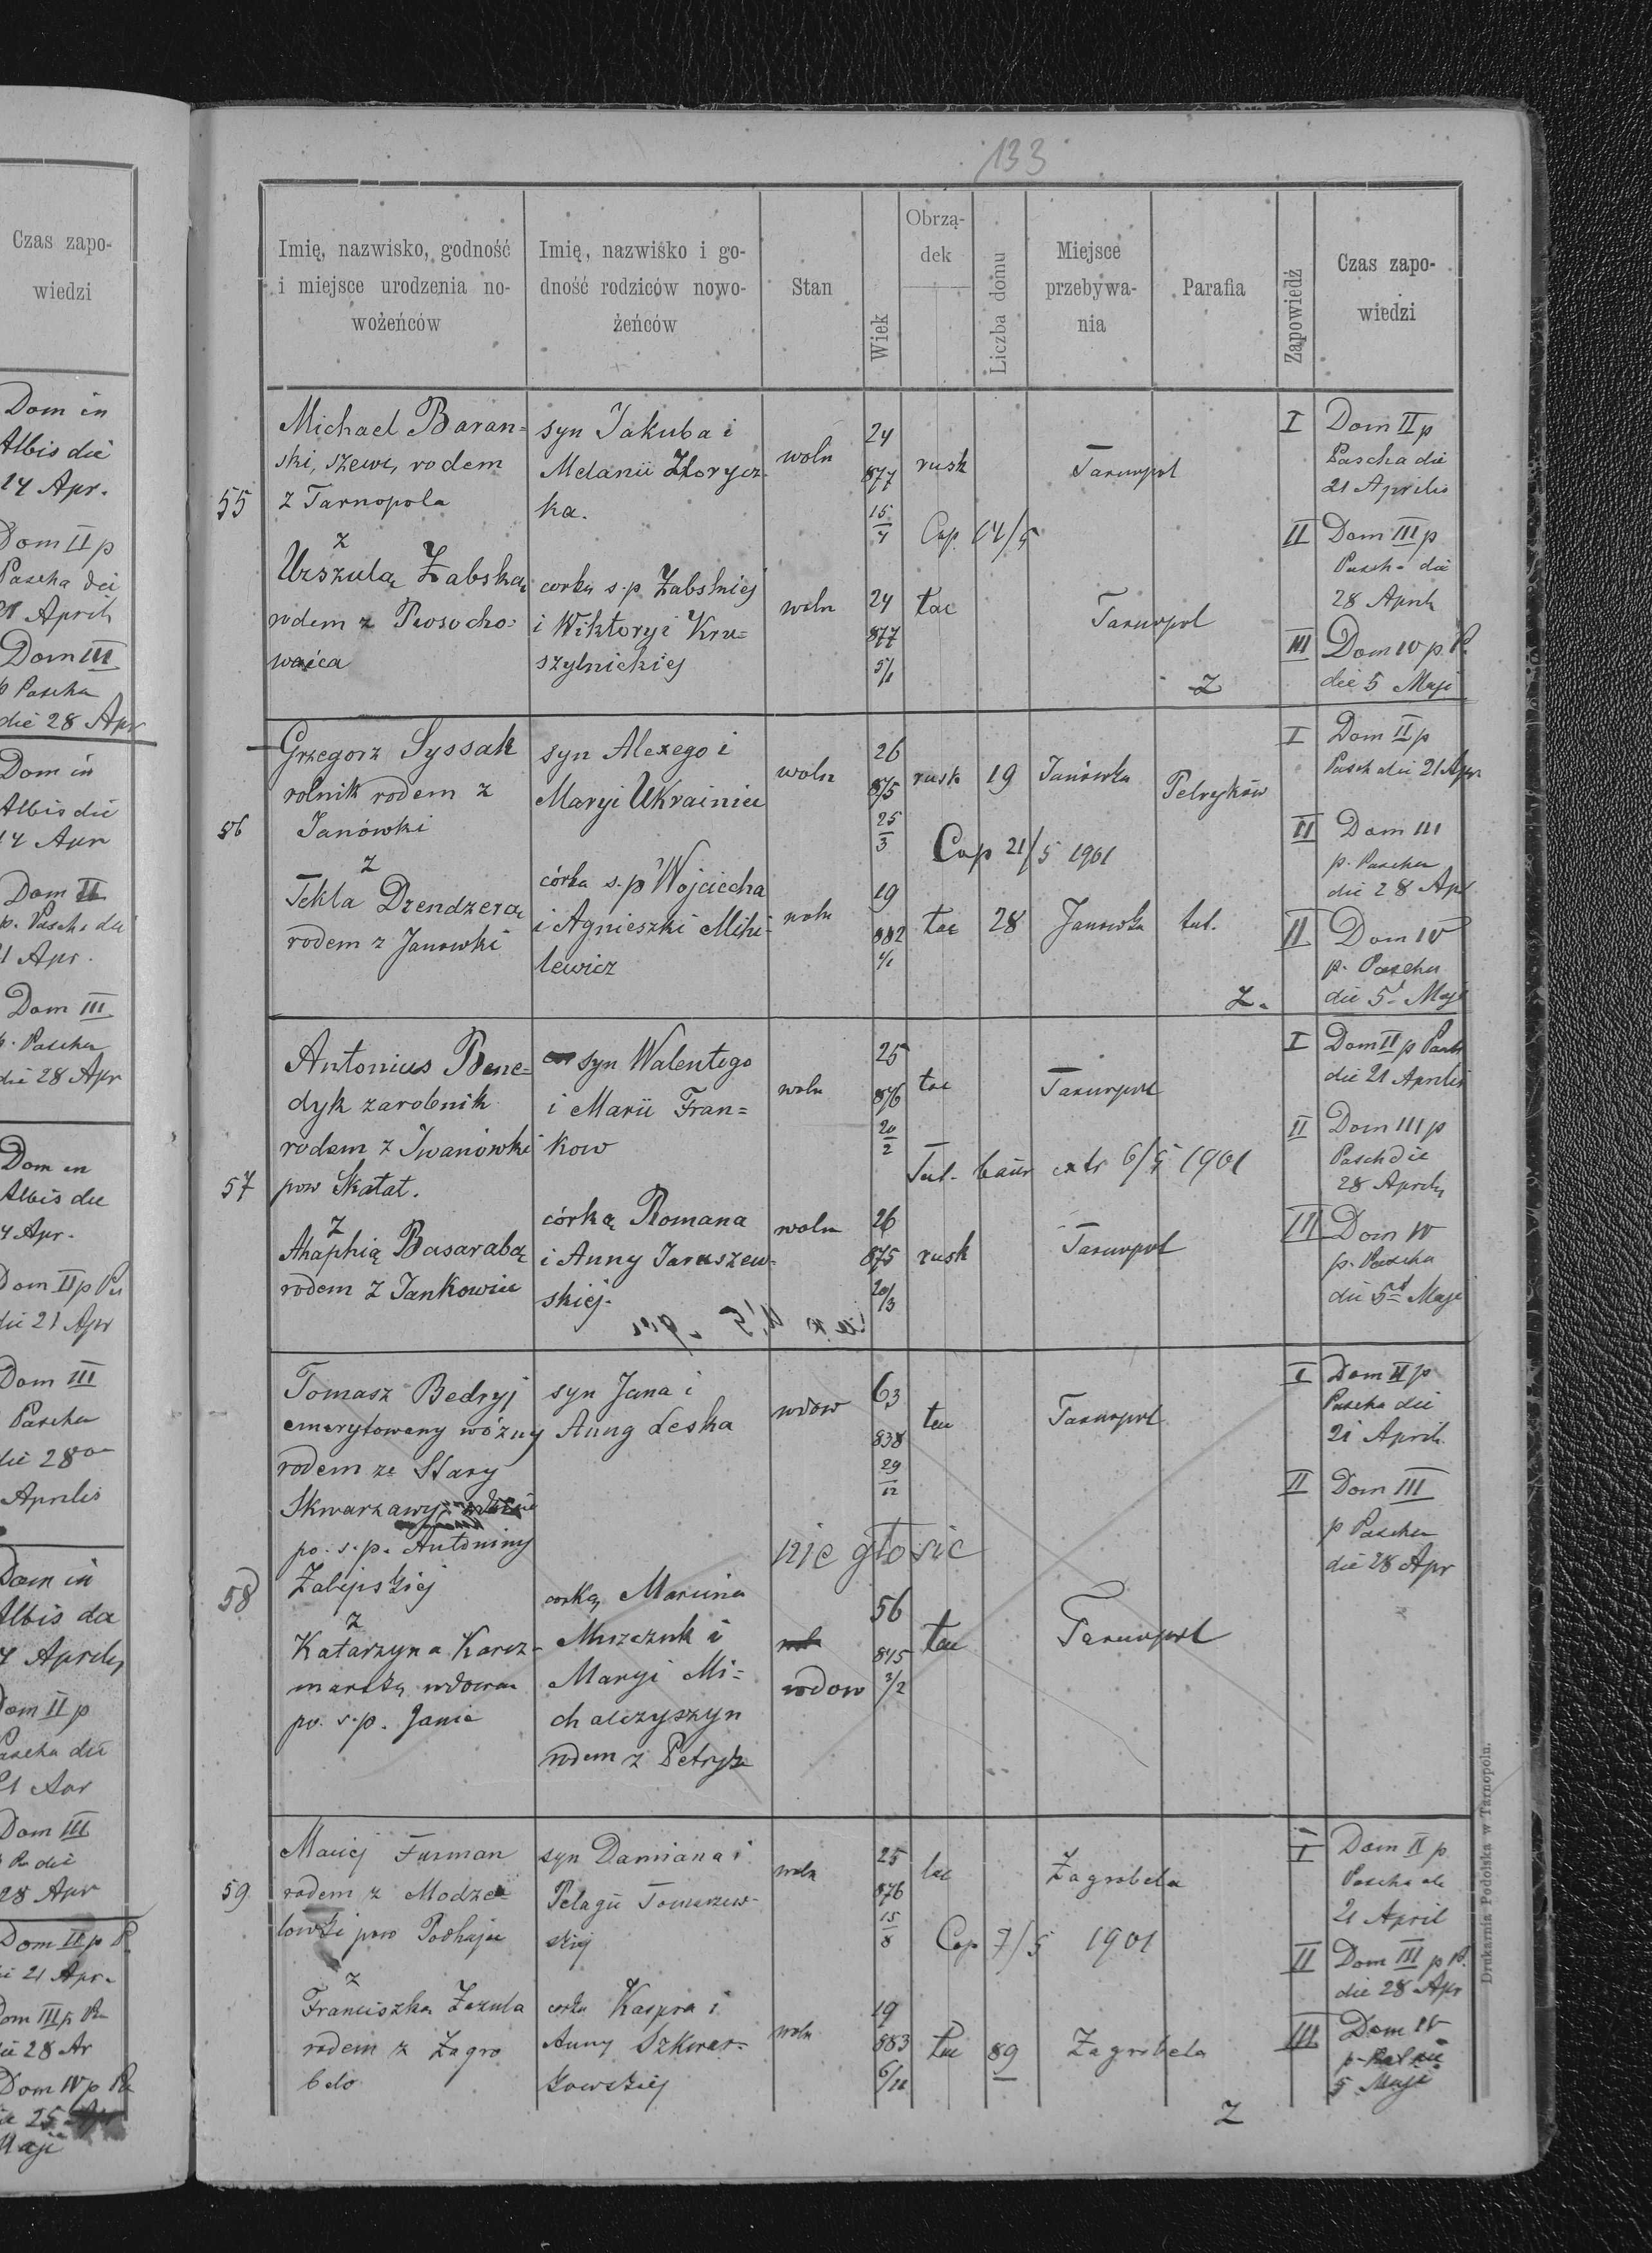 133
Czas zapo-
wiedzi
Dom in
Albis die
14 Apr.
Dom II p
Pascha die
21 Aprilis
Dom III
p Pascha
die 28 Apr
Dom in
Albis die
14 Apr
Dom II
p. Pascha die
21 Apr.
Dom III
p. Pascha
die 28 Apr
Dom in
Albis die
14 Apr.
Dom II p Pa
die 21 Apr
Dom III
Pascha
die 28
Aprilis
Dom in
Albis da
14 Aprilis
Dom II p
Pascha die
21 Apr
Dom III
p Pa die
28 Apr
Dom II p P.
die 21 Apr.
Dom III p Pa
die 28 Ap
Dom IV p Pa
die 25 Apr
Maji
Imię, nazwisko, godność
i miejsce urodzenia no-
wożeńców
Imię, nazwisko i go-
dność rodziców nowo-
żeńców
Stan
Wiek
Obrzą-
dek
Liczba domu
Miejsce
przebywa-
nia
Parafia
Zapowiedź
Czas zapo-
wiedzi
55
Michael Baran=
ski, szewc, rodem
z Tarnopola
z
Urszulą Żabską
rodem z Prosocho-
syn Jakuba i
Melanii Zlorycz-
ka.
corką s.p. Żabskiej
i Wiktoryi Kru=
szylnickiej
woln
woln
24
877
15/4
24
877
5/1
rusk
Cop. 14/5
łac
Tarnopol
Tarnopol
Z
I Dom II p
Pascha die
21 Aprilis
II Dom III p
Pascha die
28 April
III Dom IV p. P.
die 5 Maji
56
Grzegorz Syssak
rolnik rodem z
Janówki
z
Tekla Drendzera
rodem z Janowki
syn Alexego i
Maryi Ukrainiec
córka s.p Wojciecha
i Agnieszki Mihi-
lewicz
woln
woln
26
875
25/3
19
882
4/1
rusk 19 Janówka Petryków
Cop 21/5 1901
łac 28 Janowka tut.
Z.
I Dom II p
Pasch die 21 Apr
II Dom III
p. Pascha
die 28 Apl
II Dom IV
p. Pascha
die 5 Maji
57
Antonius Bene=
dyk zarobnik
rodem z Iwanówki
pow Skałat.
z
Ahaphią Basarabą
rodem z Jankowiec
syn Walentego
i Marii Fran=
kow
córką Romana
i Anny Jaruszew-
skiej.
woln
woln
25
876
20/2
26
875
20/3
łac
Tarnopol
6/5 1901
rusk
Tarnopol
I Dom II p Pasch
die 21 Aprilis
II Dom III p
Pasch die
28 Aprilis
III Dom IV
p. Pascha
die 5 Maji
58
Tomasz Bedryj
emerytowany wóźny
rodem ze Stary
Skwarzawy
po. s.p. Antoniny
z
Katarzyna Karcz-
wdowa
po. s.p. Janie
syn Jana i
Anny Leska
corką Marcina
Muszczuk i
Maryi Mi=
chalczyszyn
rodem z Petryk
wdow
nie głosic
wdow
63
838
29/12
56
845
2/2
łac
Tarnopol
łac
Tarnopol
I Dom II p
Pascha die
21 April.
II Dom III
p Pascha
die 28 Apr
59
Maciej Furman
rodem z Modze-
lowki pow Podhajce
z
Franciszka Zazula
rodem z Zagro
bela
syn Damiana i
Pelagii Tomaszew-
skiej
corka Kaspra i
Anny Szkwar-
kowskiej
woln
woln
25
876
15/8
19
883
6/12
łac
Zagrobela
Cop 7/5 1901
łac 89 Zagrobela
Z
I Dom II p
Pascha die
21 April
II Dom III p P.
die 28 Apr
III Dom IV
5 Maji
Drukarnia Podolska w Tarnopolu.